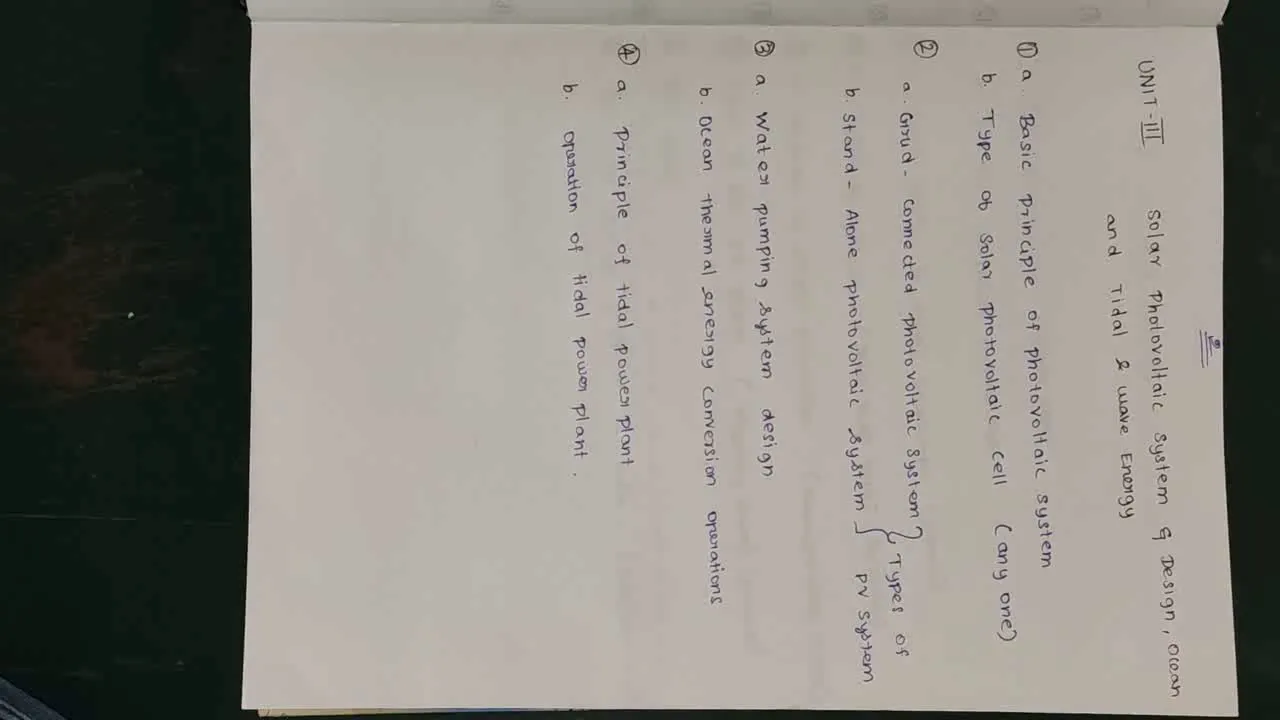 UNIT-III Solar Photovoltaic System & Design, Ocean
and Tidal & wave Energy
① a. Basic principle of photovoltaic system
b. Type of Solar photovoltaic cell (any one)
②
a. Grid-connected photovoltaic system } Types of
b. Stand-Alone photovoltaic system } PV system
③ a. Water pumping system design
b. Ocean thermal energy conversion operations
④ a. principle of tidal power plant
b. operation of tidal power plant.